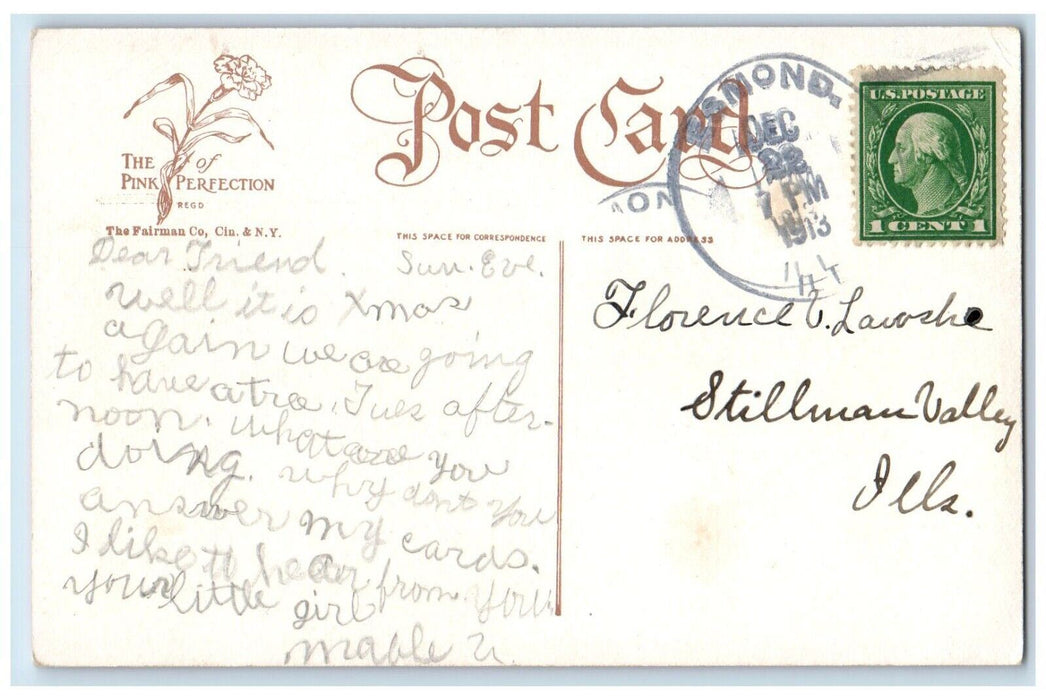 THE of
PINK PERFECTION
REGD
The Fairman Co, Cin. & N.Y.
Post Card
THIS SPACE FOR CORRESPONDENCE
THIS SPACE FOR ADDRESS
MOND,
DEC
22
7 PM
1913
ILL
MON
U.S. POSTAGE
1 CENT 1
Dear Friend. Sun. Eve.
well it is Xmas
again we are going
to have a tree, Tues after-
noon. what are you
doing. why dont you
answer my cards.
I like to hear from you
your little girl
Mable U.
Florence V. Lawshe
Stillman Valley
Ills.